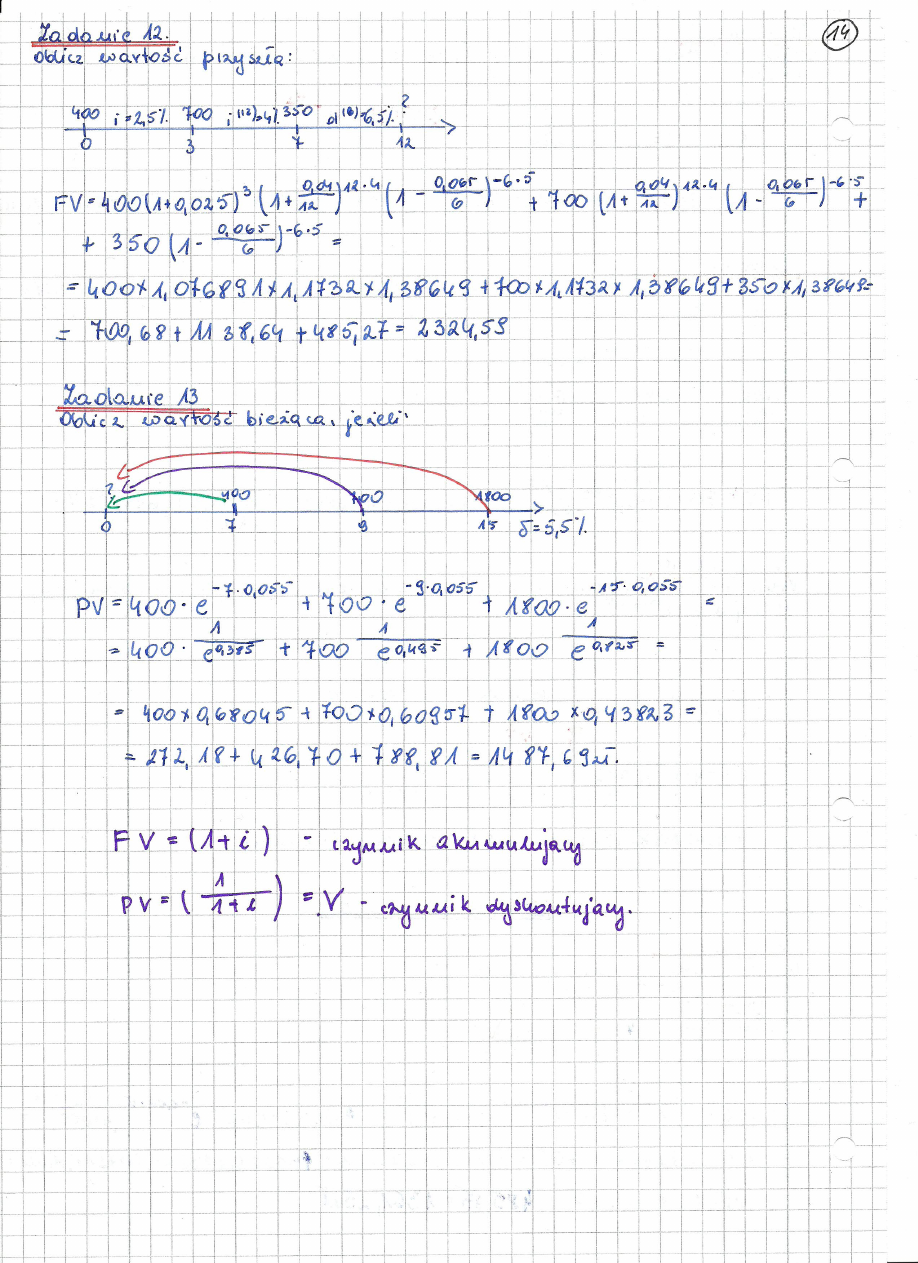 14
Zadanie 12.
Oblicz wartość przyszłą:
400 i=2,5% 700 i⁽¹²⁾=4% 350 d⁽⁶⁾=6,5% ?
0 3 7 12
FV=400(1+0,025)³(1+0,04/12)^12·4(1-0,065/6)^-6·5+700(1+0,04/12)^12·4(1-0,065/6)^-6·5+
+ 350(1-0,065/6)^-6·5=
=400×1,076891×1,1732×1,38649+700×1,1732×1,38649+350×1,38649=
= 700,68+1138,64+485,27=2324,59
Zadanie 13
Oblicz wartość bieżącą, jeżeli:
? 400 700 1800
0 7 9 15 δ=5,5%.
PV=400·e^-7·0,055+700·e^-9·0,055+1800·e^-15·0,055 =
=400·1/e^0,385+700 1/e^0,495+1800 1/e^0,825=
= 400×0,68045+700×0,60957+1800×0,43823=
= 272,18+426,70+788,81=1487,69zł.
FV=(1+i) - czynnik akumulujący
PV=(1/1+i)=V - czynnik dyskontujący.